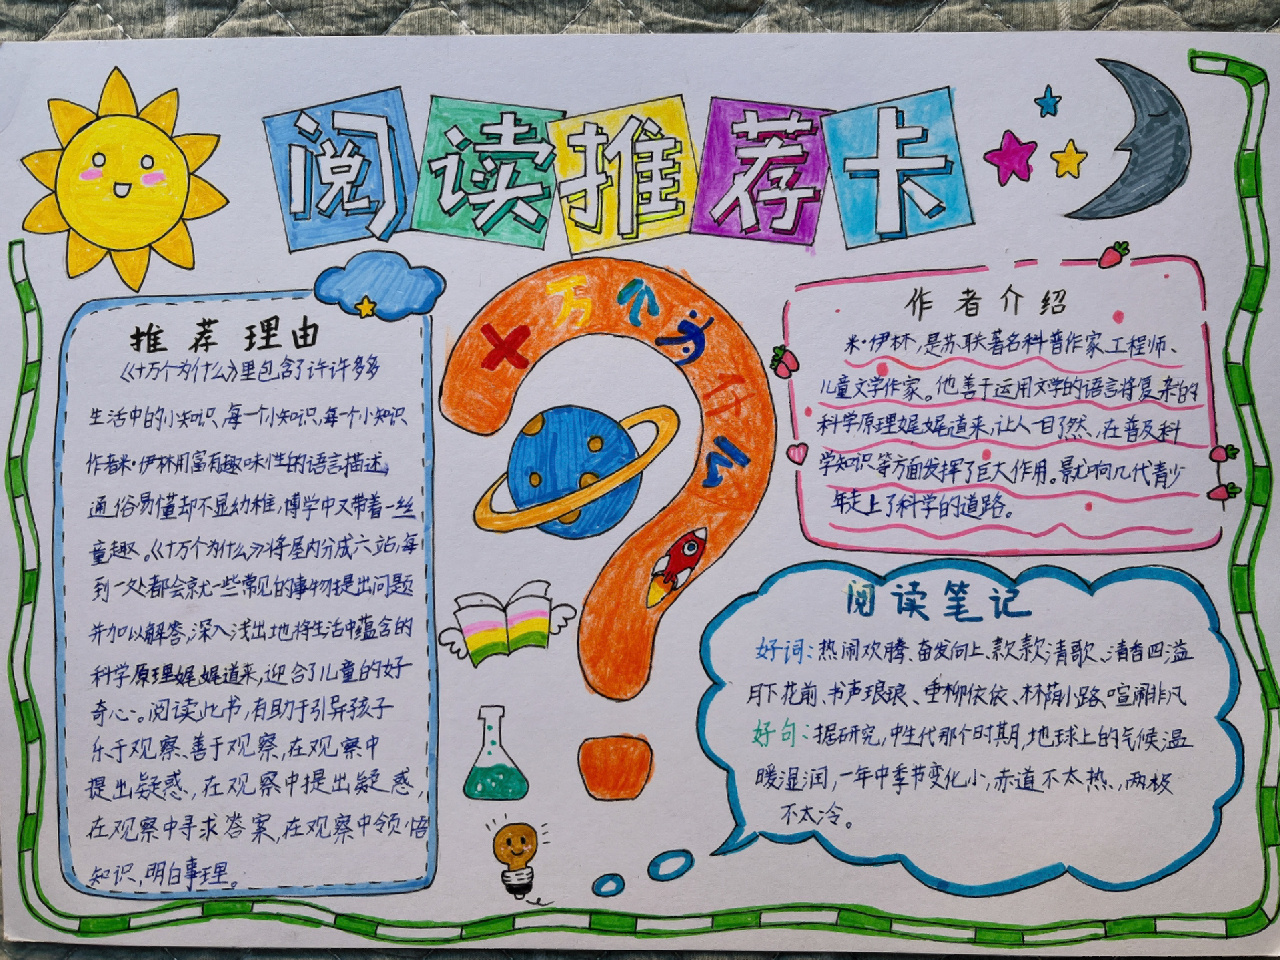 阅读推荐卡
推荐理由
《十万个为什么》里包含了许许多多
生活中的小知识,每一个小知识,每一个小知识
作者米·伊林用富有趣味性的语言描述,
通俗易懂却不显幼稚,博学中又带着一丝
童趣。《十万个为什么》将屋内分成六站,每
到一处都会就一些常见的事物提出问题
并加以解答,深入浅出地将生活中蕴含的
科学原理娓娓道来,迎合了儿童的好
奇心。阅读此书,有助于引导孩子
乐于观察、善于观察,在观察中
提出疑惑,在观察中提出疑惑,
在观察中寻求答案,在观察中领悟
知识,明白事理。
十万个为什么
作者介绍
米·伊林,是苏联著名科普作家、工程师、
儿童文学作家。他善于运用文学的语言将复杂的
科学原理娓娓道来,让人一目了然,在普及科
学知识等方面发挥了巨大作用。影响几代青少
年走上了科学的道路。
阅读笔记
好词:热闹欢腾、奋发向上、款款清歌、清香四溢
月下花前、书声琅琅、垂柳依依、林荫小路、喧闹非凡
好句:据研究,中生代那个时期,地球上的气候温
暖湿润,一年中季节变化小,赤道不太热,两极
不太冷。